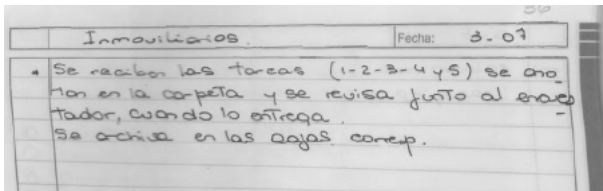 56
Inmoviliarios. Fecha: 3-07
• Se reciben las tareas (1-2-3-4 y 5) se ano_
tan en la carpeta y se revisa junto al
tador, cuando lo entrega.
Se archiva en las cajas corresp.